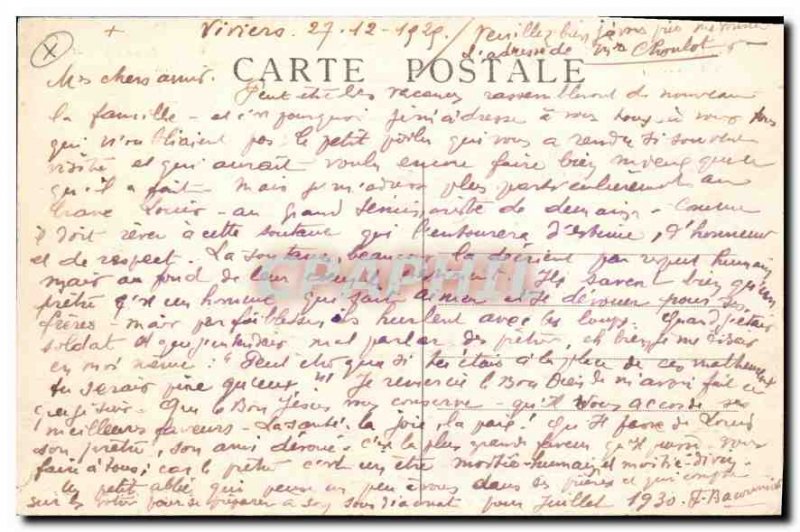 Viviers. 27-12-1929 / Veuillez bien je vous prie me donner
l'adresse de Mr Choulot
Mes chers amis.
CARTE POSTALE
Peut-être les vacances rassembleront de nouveau
la famille - et c'est pourquoi je m'adresse à vous tous
qui n'oubliaient pas le petit poilu qui vous a rendu si souvent
visite et qui aurait voulu encore faire bien mieux que
qu'il a fait. Mais je m'adresse plus particulièrement au
brave Louis - au grand séminariste de demain - comme
il doit rêver à cette soutane qui l'entourera d'estime, d'honneur
et de respect. La soutane, beaucoup la par respect humain
mais au fond de leur Ils savent bien qu'un
prêtre c'est un homme qui sait aimer et se dévouer pour ses
frères - mais par faiblesse ils hurlent avec les loups. Quand j'étais
soldat et que j'entendais mal parler des prêtres, eh bien je me disais
en moi même : "Peut-être que si tu étais à la place de ces malheureux
tu serais pire qu'eux"! Je remercie le Bon Dieu de m'avoir fait ce
que je suis. Que le Bon Jésus vous conserve - qu'Il vous accorde ses
meilleures faveurs - La santé, la joie, la paix! Qu'Il fasse de Louis
son prêtre, son ami dévoué - c'est la plus grande faveur qu'Il puisse vous
faire à tous; car le prêtre c'est un être moitié-humain et moitié-divin.
Le petit abbé qui pense un peu à vous dans ses prières et qui compte
sur les vôtres pour se préparer à son sous diaconat pour Juillet 1930.